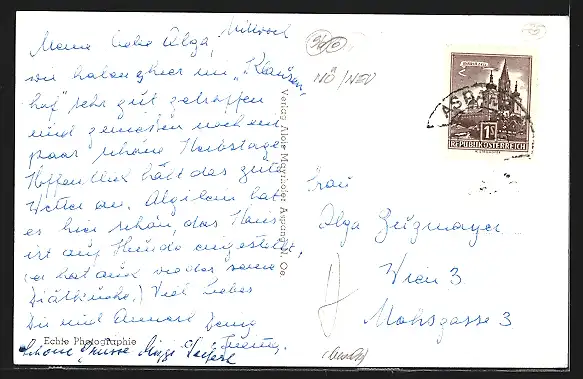 Mittwoch
Meine liebe Olga,
wir haben hier im "Klausen-
hof" sehr gut getroffen
und genießen noch ein
paar schöne Herbsttage.
Hoffentlich hält das gute
Wetter an.
es hier schön, das Haus
ist auf Hunde eingestellt,
(er hat auch wieder seine
Diätküche.) Viel Liebes
Dir und
Schöne Grüsse
Echte Photographie
Verlag Alois Mayrhofer Aspang N. Oe.
NÖ/NEU
MARIAZELL
1S
REPUBLIK ÖSTERREICH
ASPANG
Frau
Olga Zeugmayer
Wien 3
Mohsgasse 3